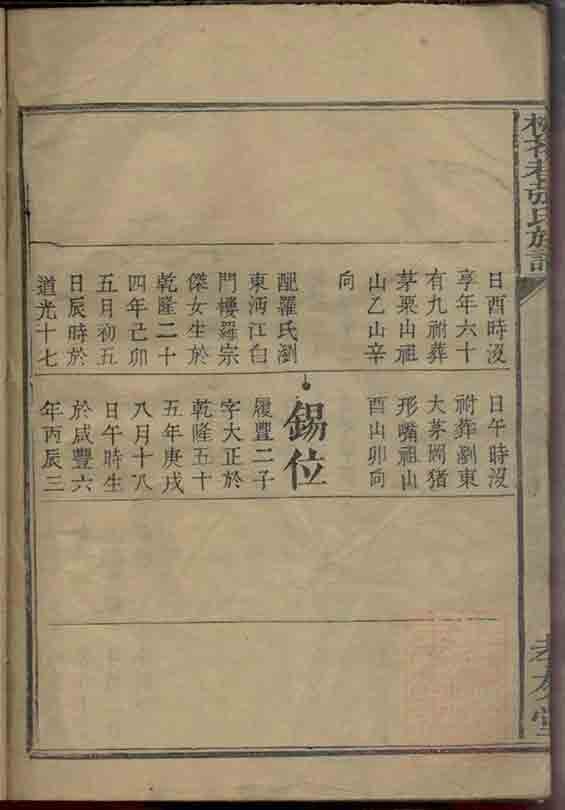 張氏族譜
日酉時沒
享年六十
有九祔葬
茅栗山祖
山乙山辛
向
配羅氏瀏
東沔江白
門樓羅宗
傑女生於
乾隆二十
四年己卯
五月初五
日辰時於
道光十七
日午時沒
祔葬瀏東
大茅園豬
形嘴祖山
酉山卯向
錫位
履豐二子
字大正於
乾隆五十
五年庚戌
八月十八
日午時生
於咸豐六
年丙辰三
孝友堂